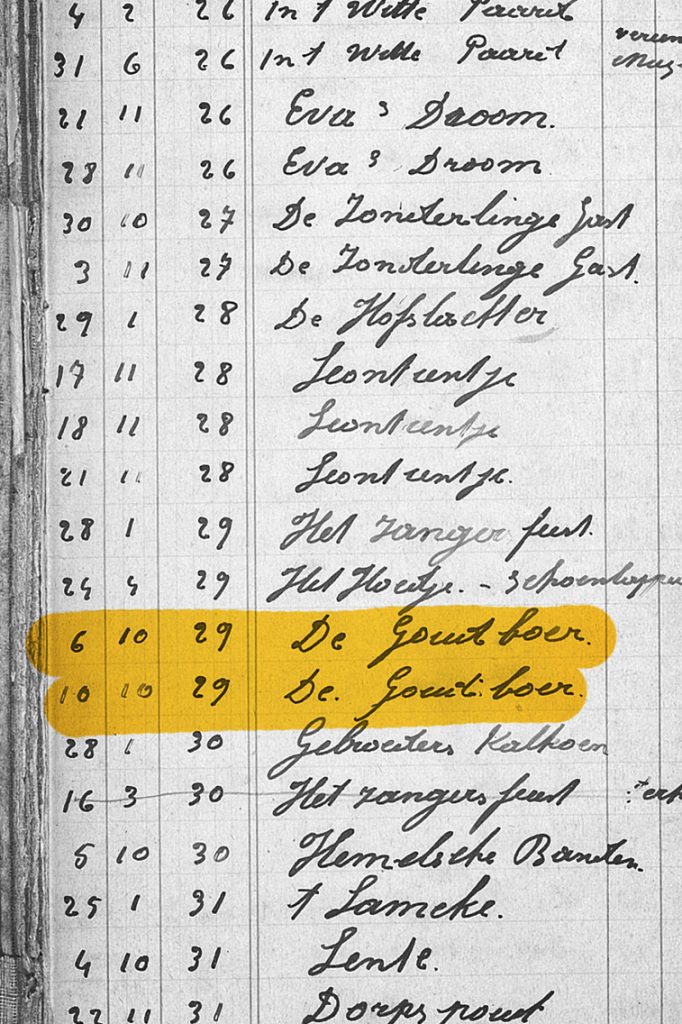 4 2 26 In 't Witte Paard
31 6 26 In 't Witte Paard
21 11 26 Eva's Droom.
28 11 26 Eva's Droom
30 10 27 De Zonderlinge Gast
3 11 27 De Zonderlinge Gast.
29 1 28 De Hofslachter
17 11 28 Leontientje
18 11 28 Leontientje
21 11 28 Leontientje.
28 1 29 Het zangersfeest.
29 Het Hoedje. - Schoenlapper
6 10 29 De Goudboer.
10 10 29 De. Goudboer.
28 1 30 Gebroeders Kalkoen
16 3 30 Het zangersfeest
5 10 30 Hemelsche Banden.
25 1 31 't Lameke.
4 10 31 Lente.
22 11 31 Dorps